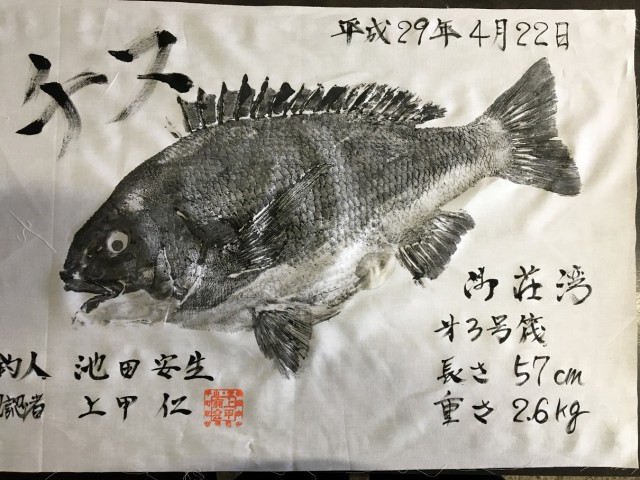 平成29年4月22日
ケス
御荘湾
才3号筏
長さ 57cm
重さ 2.6kg
釣人 池田安生
認者 上甲仁